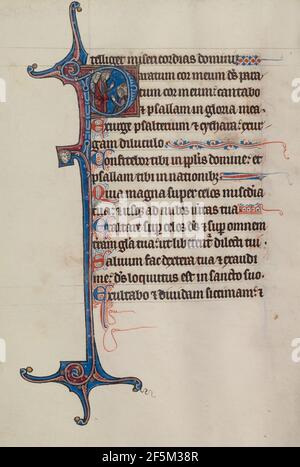 telliget misericordias domini
Paratum cor meum ds para
tum cor meum cantabo
& psallam in gloria mea
Exurge psalterium & cythara exur
gam diluculo
Confitebor tibi in pplis domine et
psallam tibi in nationib;
Quia magna super celos misedia
tua & usq; ad nubes ueritas tua
Exaltare sup celos ds & sup omnem
tram gla tua ut libentur dilecti tui
Saluum fac dextera tua & exaudi
me ds locutus est in sancto suo
Exultabo & diuidam sicimam &
alamy
Image ID: 2F5M38R
www.alamy.com